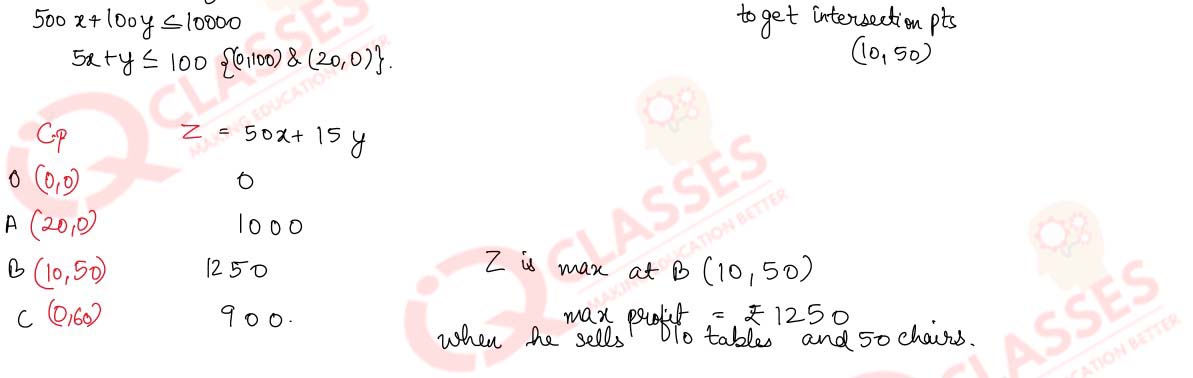 500x+100y ≤ 10000
5x+y ≤ 100 {(0,100) & (20,0)}.
to get intersection pts
(10,50)
C.P Z = 50x+ 15 y
O (0,0) 0
A (20,0) 1000
B (10,50) 1250
C (0,60) 900.
Z is max at B (10,50)
max profit = ₹1250
when he sells 10 tables and 50 chairs.
IQ CLASSES
MAKING EDUCATION BETTER
IQ CLASSES
MAKING EDUCATION BETTER
CLASSES
EDUCATION BETTER